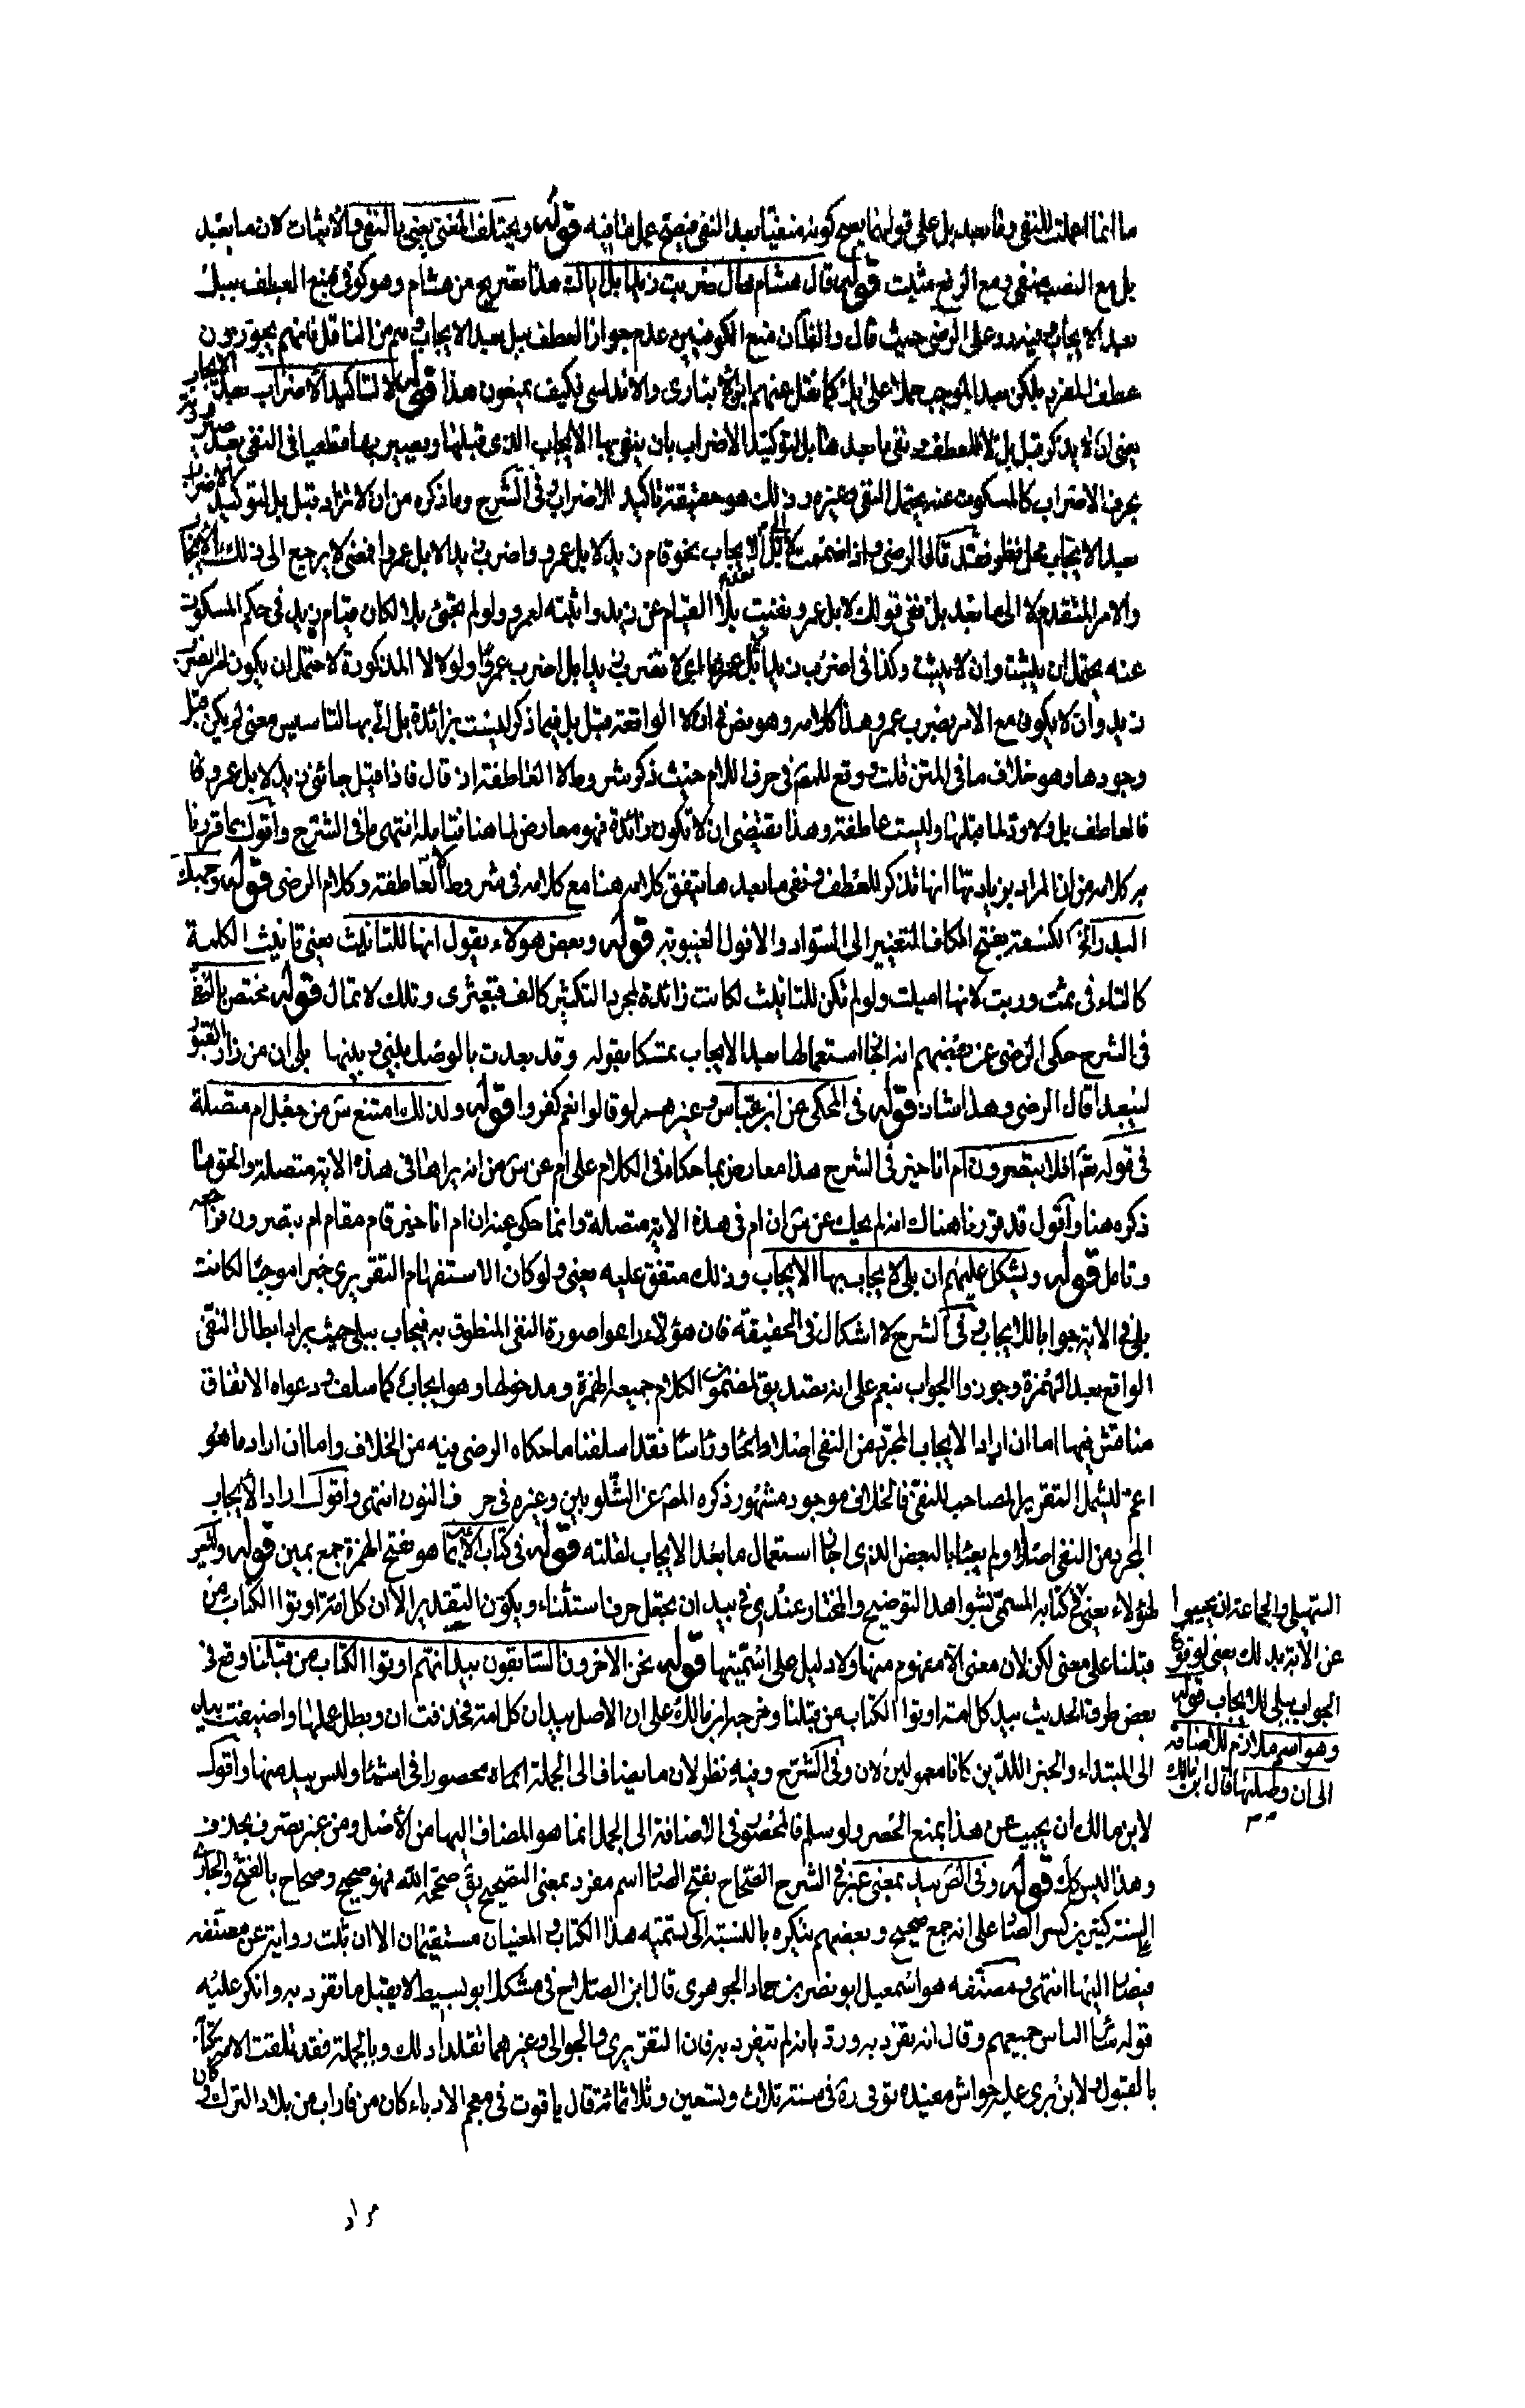 ما انما اعملت للنفى وما بعد بل على قولهما يصح كونه منفيا بعد النفى فيصح عمل ما فيه قوله ويختلف المعنى يعنى بالنفى والاثبات لان ما بعد
بل مع النصب منفى ومع الرفع مثبت قوله قال هشام محال ضربت زيدا بل اياك هذا تصريح من هشام وهو كوفى بمنع العطف ببل
بعد الايجاب فيرد على الرضى حيث قال والظاهر ان منع الكوفيين عدم جواز العطف ببل بعد الايجاب من الناقل فانهم يجوزون
عطف المفرد بلكن بعد الموجب حملا على بل كما نقل عنهم ابن الانبارى والاندلسى فكيف يمنعون هذا قوله لا لتاكيد الاضراب بعد الايجاب
يعنى ان لا يذكر قبل بل لا للعطف ونفى ما بعدها بل لتوكيد الاضراب بان ينفى بها الايجاب الذى قبلها ويصير بها قطعيا فى النفى بعد
بحرف الاضراب كالمسكوت عنه يحتمل النفى وغيره وذلك هو حقيقة تاكيد الاضراب فى الشرح وما ذكره من ان لا تزاد قبل بل لتوكيد الاضراب
بعد الايجاب محل نظر فقد قال الرضى واذا ضممت لا الى بل بعد الايجاب نحو قام زيد لا بل عمرو واضرب زيدا لا بل عمرا فمعنى لا يرجع الى ذلك الايجاب
والامر المتقدم لا الى ما بعد بل ففى قولك لا بل عمرو نفيت بلا القيام عن زيد واثبته لعمرو ولو لم تجئ بلا لكان قيام زيد فى حكم المسكوت
عنه يحتمل ان يثبت وان لا يثبت وكذا فى اضرب زيدا لا بل عمرا اى لا تضرب زيدا بل اضرب عمرا ولولا لا المذكورة لاحتمل ان يكون امرا بضرب
زيد وان لا يكون مع الامر بضرب عمرو هذا كلامه وهو نص فى ان لا الواقعة قبل بل فيما ذكر ليست بزائدة بل اتى بها لتاسيس معنى لم يكن قبل
وجودها وهو خلاف ما فى المتن قلت ووقع للمص فى حرف اللام حيث ذكر شروط لا العاطفة ان قال فاذا قيل جاءنى زيد لا بل عمرو فا
فالعاطف بل ولا رد لما قبلها وليست عاطفة وهذا يقتضى ان لا تكون زائدة فهو معارض لما هنا فتامله انتهى ما فى الشرح واقول بما قررنا
به كلامه من ان المراد بزيادتها انها لم تذكر للعطف ونفى ما بعدها يتفق كلامه هنا مع كلامه فى شروط لا العاطفة وكلام الرضى قوله وجهك
البدر الخ الكسفة بفتح الكاف التغيير الى السواد والافول الغيبوبة قوله وبعض هؤلاء يقول انها للتانيث يعنى تانيث الكلمة
كالتاء فى ثمت وربت لانها اميلت ولو لم تكن للتانيث لكانت زائدة لمجرد التكثير كالف قبعثرى وتلك لا تمال قوله مختص بالنفى
فى الشرح حكى الرضى عن بعضهم انه اجاز استعمالها بعد الايجاب متمسكا بقوله وقد بعدت بالوصل بينى وبينها بلى ان من زار القبور
ليبعدا قال الرضى وهذا شاذ قوله فى المحكى عن ابن عباس وغيره لو قالوا نعم كفروا قوله ولذلك امتنع س من جعل ام متصلة
فى قوله تع افلا تبصرون ام انا خير فى الشرح هذا معارض بما حكاه فى الكلام على ام عن س من انه يراها فى هذه الاية متصلة والحق ما
ذكره هنا واقول قد قررنا هناك انه لم يحك عن س ان ام فى هذه الاية متصلة وانما حكى عنه ان ام انا خير قام مقام ام تبصرون فراجعه
وتامل قوله ويشكل عليهم ان بلى لا يجاب بها الايجاب وذلك متفق عليه يعنى ولو كان الاستفهام التقريرى خبرا موجبا لكانت
بلى فى الاية جوابا للايجاب وفى الشرح لا اشكال فى الحقيقة فان هؤلاء راعوا صورة النفى المنطوق به فيجاب ببلى حيث يراد ابطال النفى
الواقع بعد الهمزة وجوزوا الجواب بنعم على انه تصديق لمضمون الكلام جميعه الهمزة ومدخولها وهو ايجاب كما سلف ودعواه الاتفاق
مناقش فيها اما ان اراد الايجاب المجرد من النفى اصلا وراسا فقد اسلفنا ما حكاه الرضى فيه من الخلاف واما ان اراد ما هو
اعم ليشمل التقرير المصاحب للنفى فالخلاف موجود مشهور ذكره المص عن الشلوبين وغيره فى حرف النون انتهى واقول اراد الايجاب
المجرد من النفى اصلا ولم يعبا بالبعض الذى اجاز استعمال ما بعد الايجاب لقلته قوله فى كتاب الايمان هو بفتح الهمزة جمع يمين قوله وليس
لهؤلاء يعنى فى كتابه المسمى بشواهد التوضيح والمختار عندى فى بيد ان يجعل حرف استثناء ويكون التقدير الا ان كل امة اوتوا الكتاب من
قبلنا على معنى لكن لان معنى الا مفهوم منها ولا دليل على اسميتها قوله نحن الاخرون السابقون بيد انهم اوتوا الكتاب من قبلنا وقع فى
بعض طرق الحديث بيد كل امة اوتوا الكتاب من قبلنا وخرجه ابن مالك على ان الاصل بيد ان كل امة فحذفت ان وبطل عملها واضيفت بيد
الى المبتداء والخبر اللذين كانا معمولين لان وفى الشرح وفيه نظر لان ما يضاف الى الجملة اسماء محصورا فى اشياء وليس بيد منها واقول
لابن مالك ان يجيب عن هذا بمنع الحصر ولو سلم فالمحصور فى الاضافة الى الجمل انما هو المضاف اليها من الاصل ومن غير تصرف بحذف
وهذا ليس كك قوله وفى الص بيد بمعنى غير فى الشرح الصحاح بفتح الصاد اسم مفرد بمعنى الصحيح يق صححه الله فهو صحيح وصحاح بالفتح والجارى على
السنة كثير ين كسر الصاد على انه جمع صحيح وبعضهم ينكره بالنسبة الى تسمية هذا الكتاب والمعنيان مستقيمان الا ان ثبتت رواية عن مصنفه
فيصار اليها انتهى ومصنفه هو اسمعيل ابو نصر بن حماد الجوهرى قال ابن الصلاح فى مشكل الوسيط لا يقبل ما تفرد به وانكر عليه
قوله سائر الناس جميعهم وقال انه تفرد به ورد بانه لم يتفرد به فان التبريزى والجواليقى وغيرهما نقلوا ذلك وبالجملة فقد تلقت الامة كتابه
بالقبول ولابن برى عليه حواش مفيدة توفى ره فى سنة ثلاث وتسعين وثلاثمائة قال ياقوت فى معجم الادباء كان من فاراب من بلاد الترك وكان
السهيلى والجماعة ان يجيبوا
عن الاية بذلك يعنى لوقوع
الجواب ببلى للايجاب قوله
وهو اسم ملازم للاضافة
الى ان وصلتها قال ابن مالك